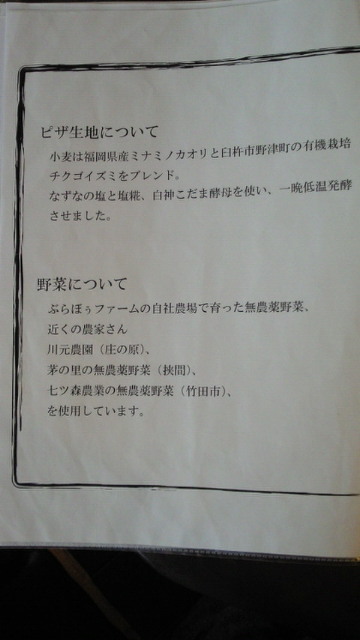 ピザ生地について
小麦は福岡県産ミナミノカオリと臼杵市野津町の有機栽培
チクゴイズミをブレンド。
なずなの塩と塩糀、白神こだま酵母を使い、一晩低温発酵
させました。
野菜について
ぶらぼぅファームの自社農場で育った無農薬野菜、
近くの農家さん
川元農園（庄の原）、
茅の里の無農薬野菜（挾間）、
七ツ森農業の無農薬野菜（竹田市）、
を使用しています。